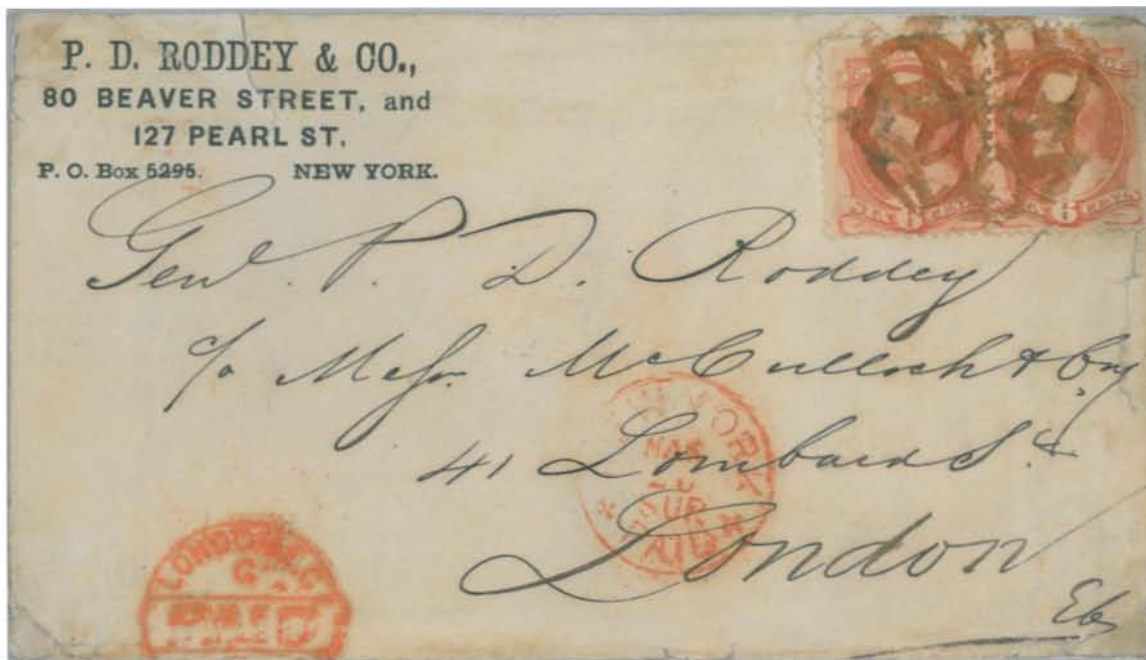 P. D. RODDEY & CO.,
80 BEAVER STREET, and
127 PEARL ST.
P. O. Box 5295. NEW YORK.
SIX 6 CENTS
SIX 6 CENTS
Genl. P. D. Roddey
c/o Messrs McCulloch & Coy
41 Lombard St
London
NEW YORK
MAR
SUP
PAID
LONDON E.C
PAID